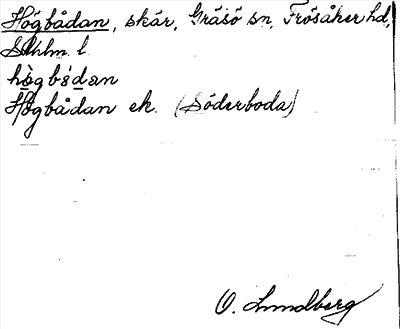 Högbådan, skär, Gräsö sn, Frösåker hd,
Sthlm l
högbådan
Högbådan ek. (Söderboda)
O. Lundberg